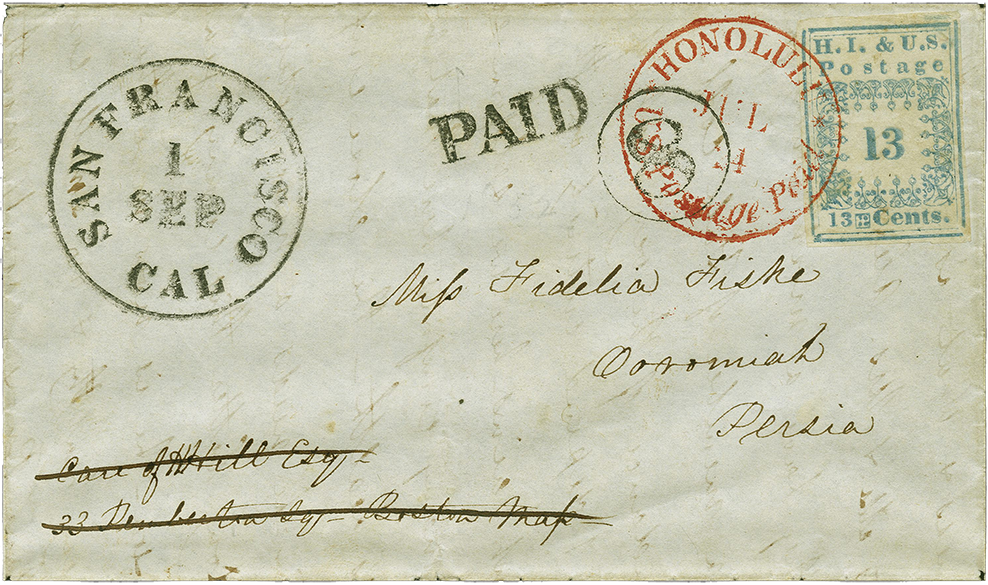 SAN FRANCISCO
1
SEP
CAL
PAID
HONOLULU
JUL
24
U.S. Postage Paid
H.I. & U.S.
Postage
13
13 Cents.
Miss Fidelia Fiske
Ooromiah
Persia
Care of H Hill Esq
33 Pemberton Sq - Boston Mass